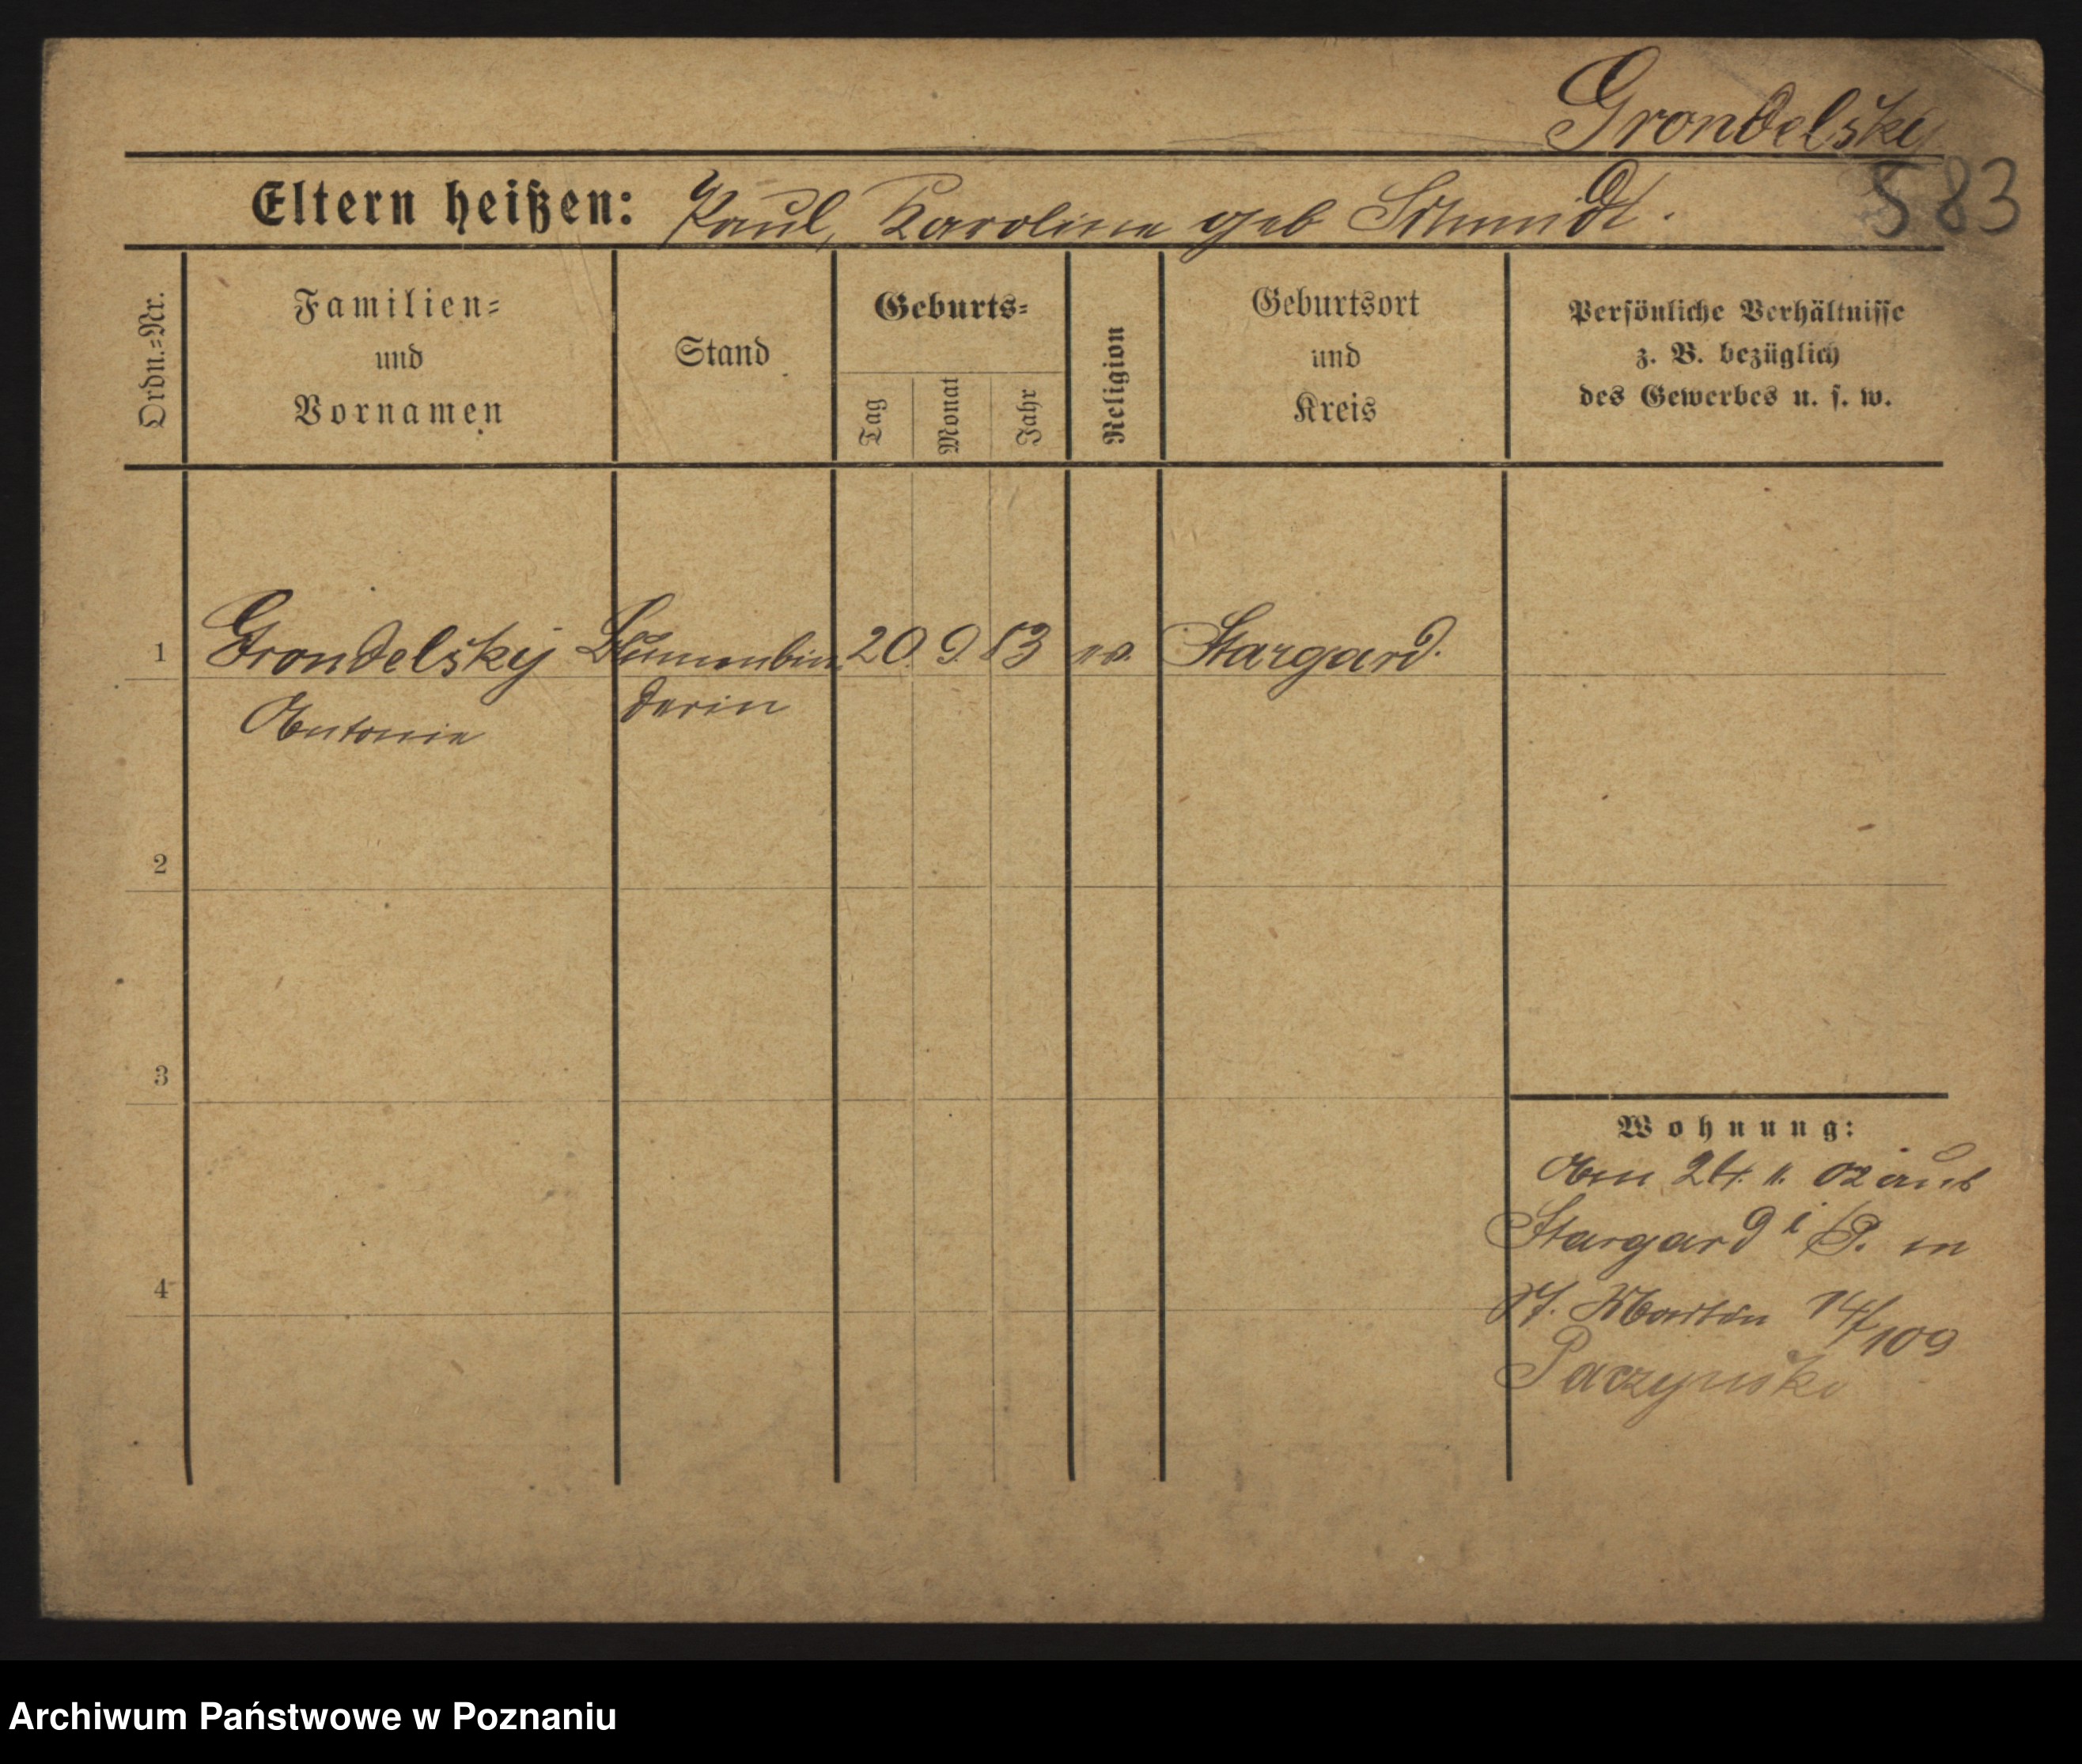 Grondelsky
583
Eltern heißen: Paul, Karoline geb Schmidt.
Ordn.=Nr.
Familien=
und
Vornamen
Stand
Geburts=
Tag
Monat
Jahr
Religion
Geburtsort
und
Kreis
Persönliche Verhältnisse
z. B. bezüglich
des Gewerbes u. s. w.
1 Grondelsky Blumenbin 20. 9. 83 ev. Stargard.
Antonie derin
2
3
4
Wohnung:
Am 24. 11. 02 aus
Stargard i/P. in
St. Martin 14/109
Paczynski
Archiwum Państwowe w Poznaniu